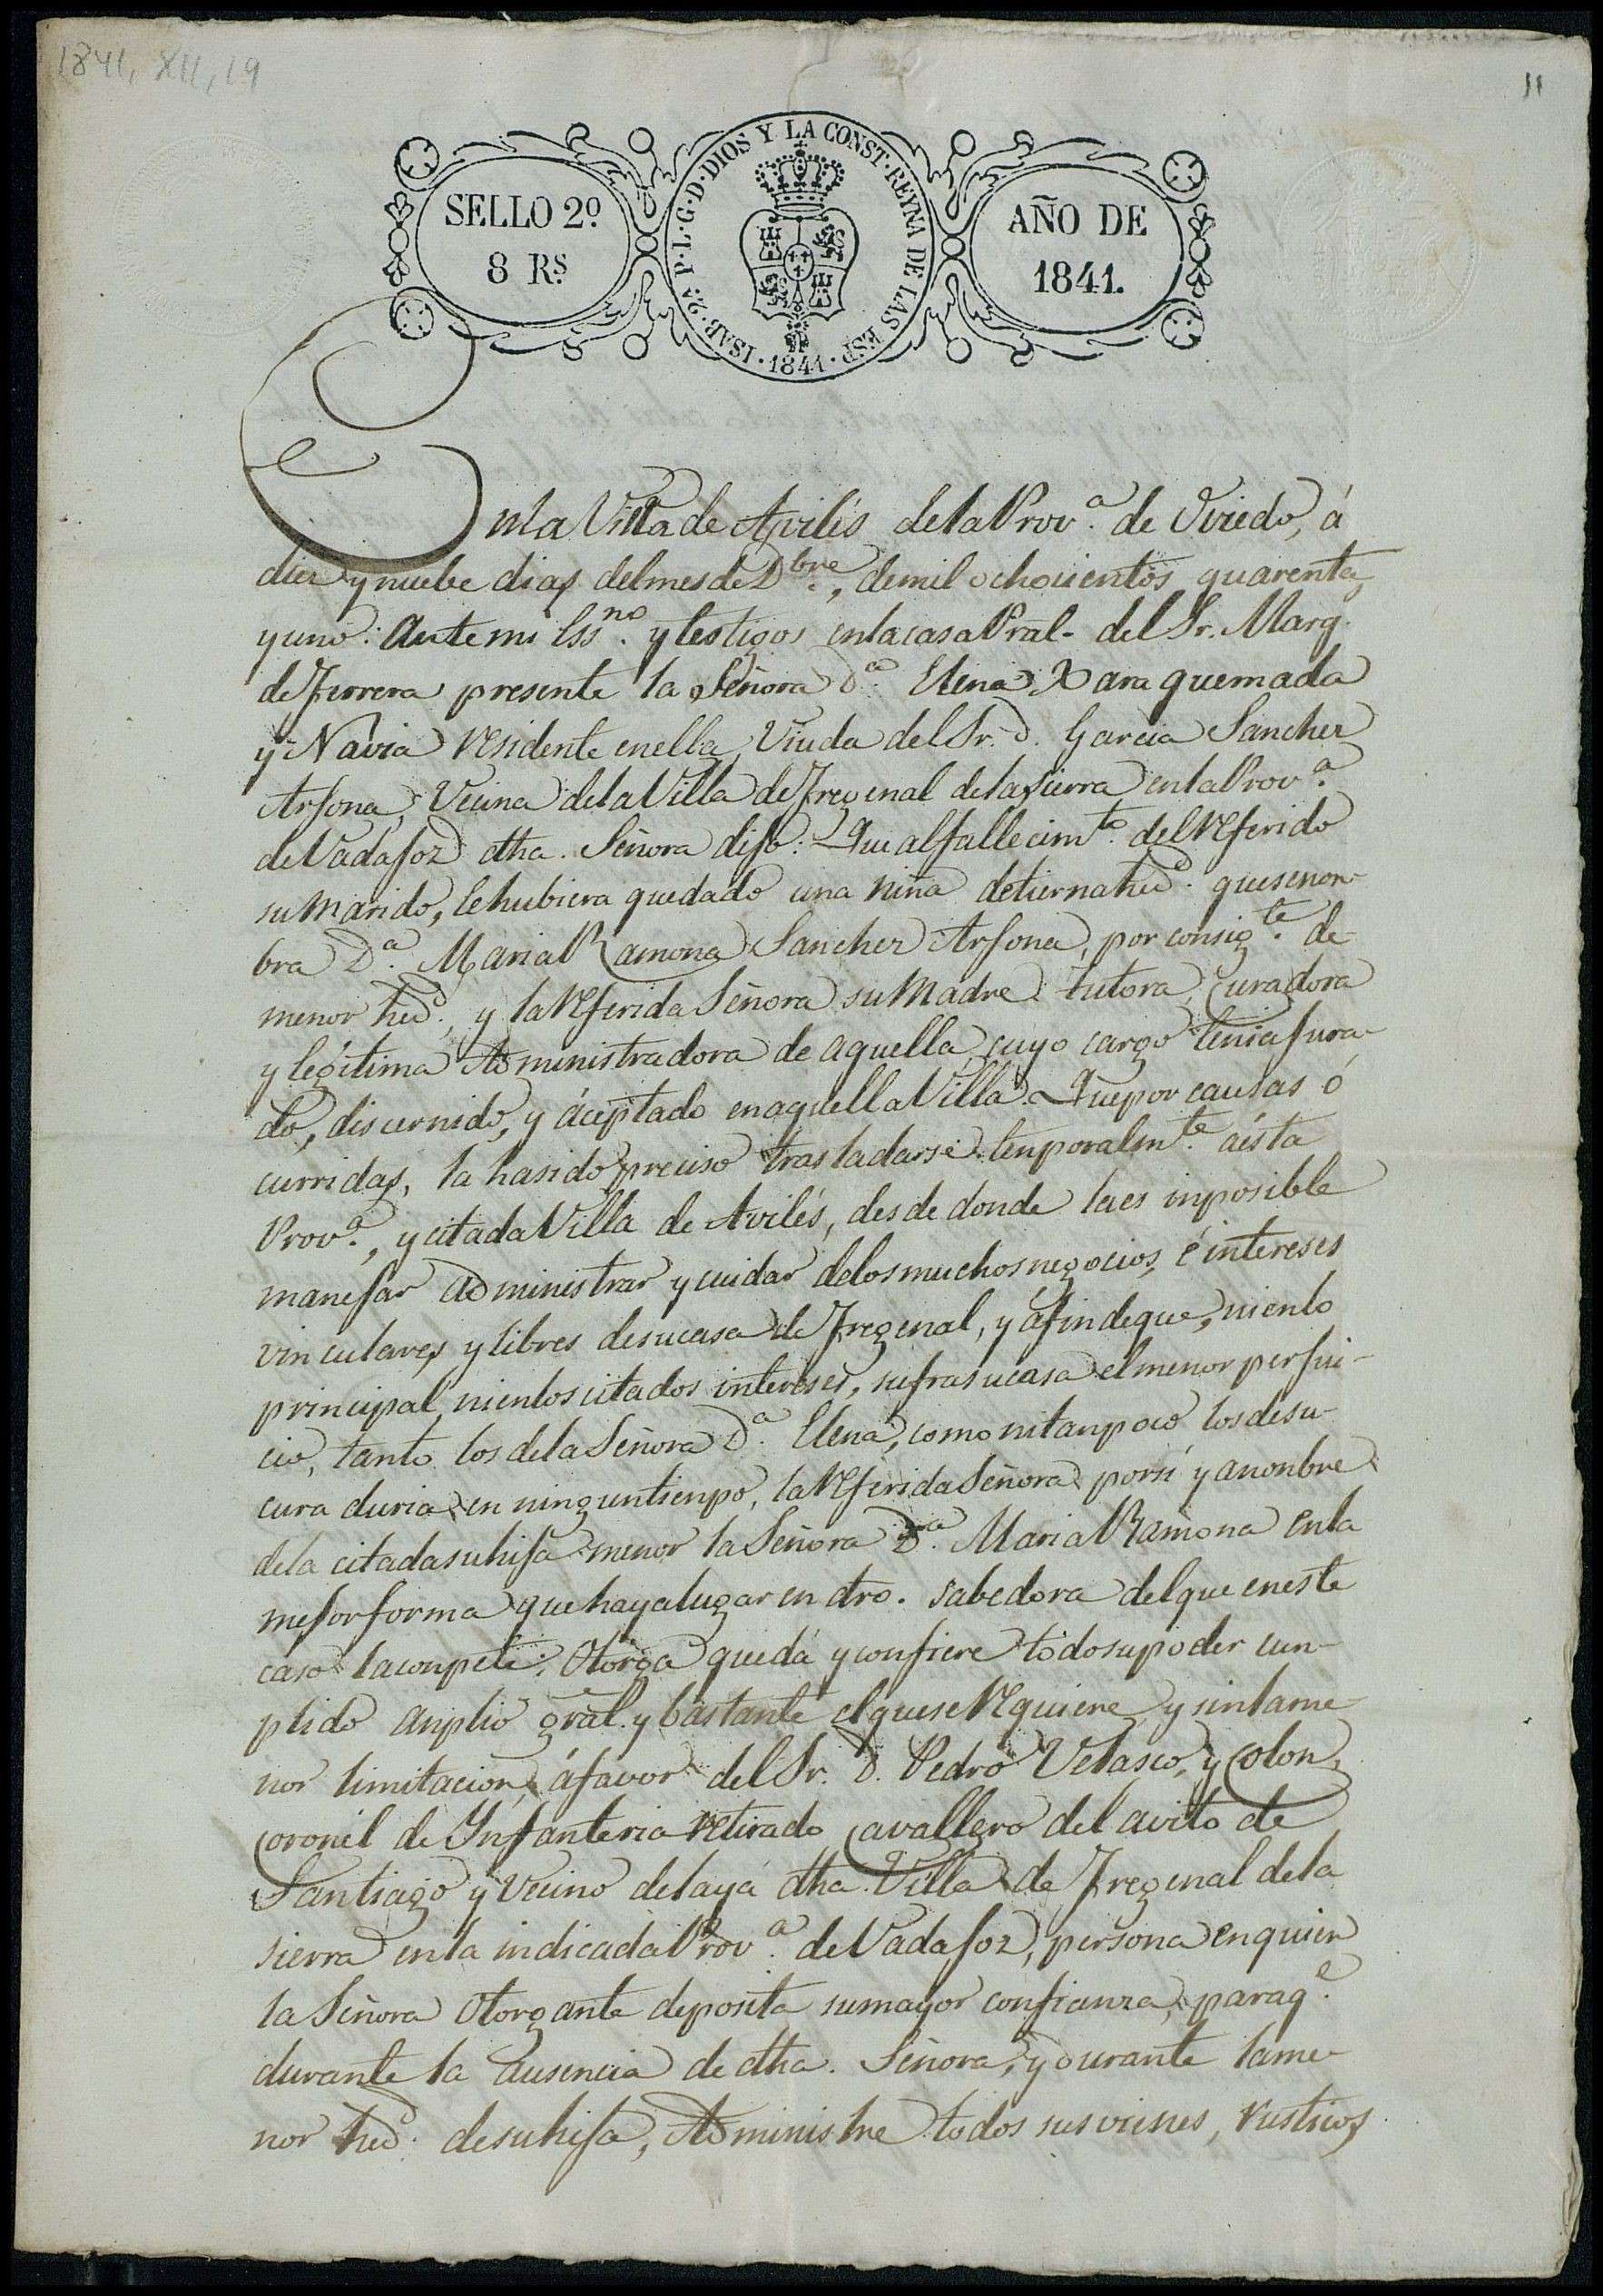 1841, XII, 19
11
SELLO 2º.
8 Rs.
ISAB. 2ª. P. L. G. D. DIOS Y LA CONST. REYNA DE LAS ESP. 1841.
AÑO DE
1841.
En la Villa de Avilés de la Prov.ª de Oviedo, á
diez y nuebe dias del mes de Dbre., de mil ochocientos quarenta,
y uno: Ante mi Essno. y testigos en la casa Pral. del Sr. Marq.
de Ferrera presente la Señora D.ª Elena Xaraquemada
y Navia residente en ella, Viuda del Sr. D. Garcia Sanchez
Arjona, Vecina de la Villa de Fregenal de la Sierra en la Prov.ª
de Vadajoz dha. Señora dijo: Que al fallecimto. del referido
su Marido, le hubiera quedado una niña de tierna hed. que se non-
bra D.ª Maria Ramona Sanchez Arjona, por consigte. de
menor hed., y la referida Señora su Madre tutora, Curadora
y legítima Administradora de aquella, cuyo cargo tenia jura-
do, discernido, y áceptado en aquella Villa. Que por causas ó
curridas, la ha sido preciso trasladarse tenporalmte. aésta
Prov.ª, y citada Villa de Avilés, desde donde la es inposible
manejar administrar y cuidar de los muchos negocios, é intereses
vinculares, y libres de su casa de Fregenal, y áfin de que, ni en lo
principal, ni en los citados intereses, sufra su casa el menor perjui-
cio, tanto los de la Señora D.ª Elena, como ni tanpoco los de su
curaduria en ningun tienpo, la referida Señora por sí y a nonbre
de la citada su hija menor la Señora D.ª Maria Ramona en la
mejor forma que haya lugar en dro. sabedora del que en este
caso la conpete: Otorga que dá y confiere tódo su poder cun-
plido anplio gral. y bastante el que se requiere, y sin la me-
nor limitacion, áfavor del Sr. D. Pedro Velasco, y Colon,
Coronel de Infanteria retirado Cavallero del avito de
Santiago y Vecino de la yá dha. Villa de Fregenal de la
sierra en la indicada Prov.ª de Vadajoz, persona en quien
la Señora Otorgante deposita su mayor confianza, para q.e
durante la Ausencia de dha. Señora, y durante la me-
nor hed. de su hija, Administre todos sus vienes, rusticos